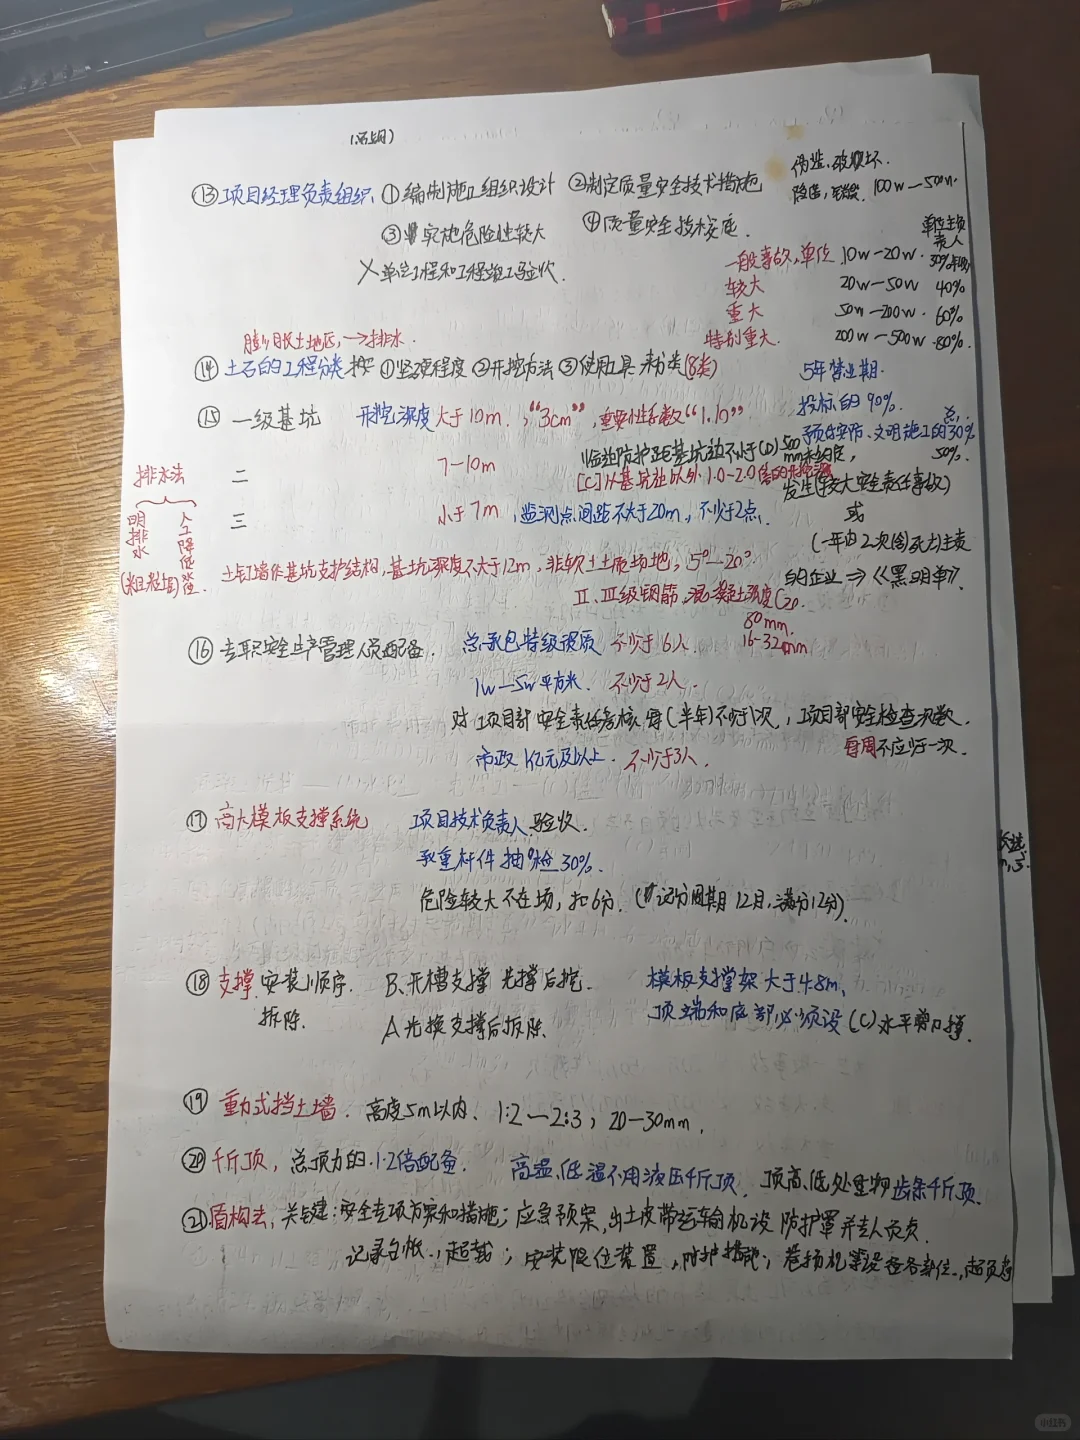 ⑬项目经理负责组织、①编制施工组织设计 ②制定质量安全技术措施
③实施危险性较大 ④质量安全技术交底.
╳单位工程和工程竣工验收.
伪造、破坏
100w—500w.
单位主负责人
一般事故,单位 10w—20w. 30%年收
较大 20w—50w 40%
重大 50w—200w. 60%
特别重大. 200w—500w 80%.
膨胀土地区,→排水.
⑭土石的工程分类,按①坚硬程度②开挖方法③使用工具 来分类(8类)
5年营业期.
投标的90%.
预付安防、文明施工的30%
50%.
⑮一级基坑 开挖深度大于10m.,“3cm”,重要性系数“1.10”
临边防护距基坑边不小于(D)500mm
二 7—10m
[C]从基坑边以外1.0-2.0倍的开挖深
三 小于7m,监测点间距不大于20m,不少于2点.
发生(较大安全责任事故)
或
(一年内2次含)死亡主责
的企业⇒《黑名单》.
排水法
明排水
人工降低
土钉墙作基坑支护结构,基坑深度不大于12m,非软土土质场地,5°—20°
Ⅱ、Ⅲ级钢筋,混凝土强度C20.
80mm.
16-32mm
⑯专职安全生产管理人员配备. 总承包特级资质 不少于6人.
1w—5w平方米. 不少于2人.
对工项目部安全责任考核每(半年)不少于1次,工项目部安全检查次数.
每周不应少于一次.
市政 1亿元及以上. 不少于3人.
⑰高大模板支撑系统 项目技术负责人验收.
承重杆件 抽检30%.
危险较大不在场,扣6分. (记分周期12月,满分12分).
⑱支撑.安装顺序. B、开槽支撑 先撑后挖. 模板支撑架大于4.8m、
拆除. A先换支撑后拆除. 顶端和底部必须设(C)水平剪刀撑.
⑲重力式挡土墙. 高度5m以内、1:2—2:3,20—30mm.
⑳千斤顶,总顶力的1.2倍配备. 高温、低温不用液压千斤顶. 顶高、低处重物 齿条千斤顶.
㉑盾构法,关键:安全专项方案和措施;应急预案,出土皮带运输机设 防护罩并专人负责.
记录台帐.,起裁;安装限位装置,防护措施;卷扬机等设备各部位.,超负荷